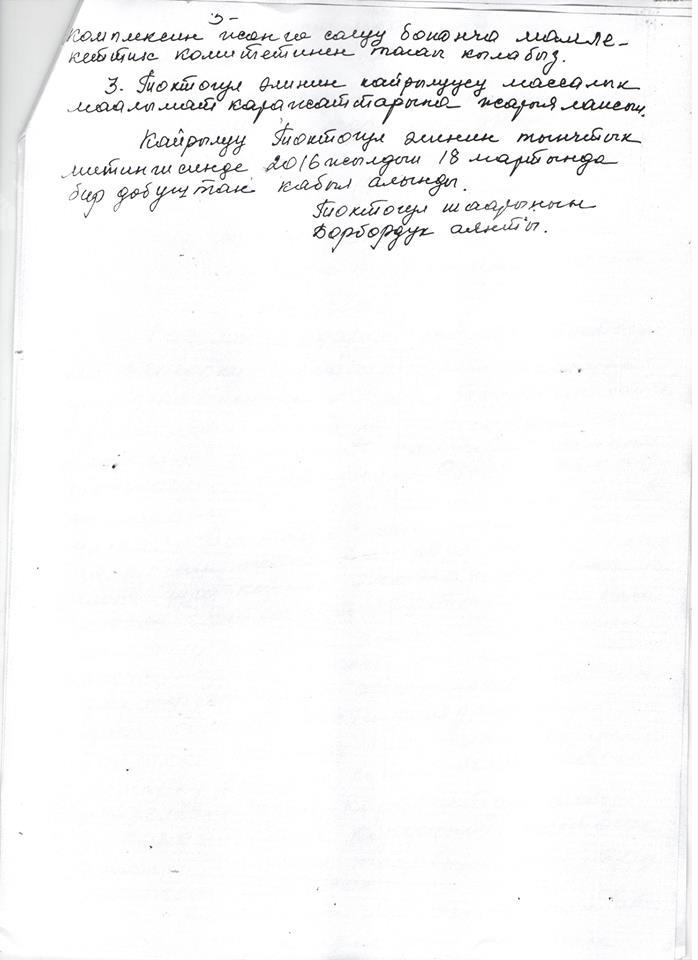 3-
комплексин ишке салуу боюнча мамле-
кеттик комитетинен талап кылабыз.
3. Токтогул элинин кайрылуусу массалык
маалымат каражаттарына жарыялансын.
Кайрылуу Токтогул элинин тынчтык
митингисинде 2016 жылдын 18 мартында
бир добуштан кабыл алынды.
Токтогул шаарынын
Борбордук аянты.